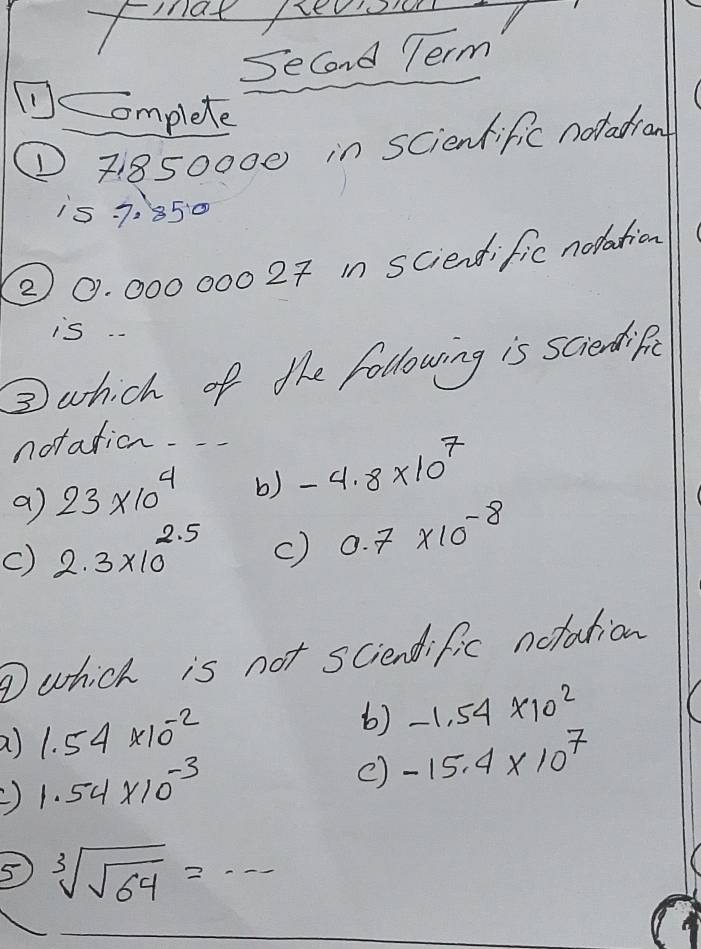 Final Revision
Second Term
1 Complete
① 7850000 in scientific notation
is 7.850
② 0.000 000 27 in scientific notation
is ..
③ which of the following is scientific
notation ---
a) 23 × 10⁴ b) - 4.8 × 10⁷
c) 2.3 × 10^2.5 c) 0.7 × 10⁻⁸
④ which is not scientific notation
a) 1.54 × 10⁻² b) -1.54 × 10²
c) 1.54 × 10⁻³ c) -15.4 × 10⁷
⑤ ∛√64 = ----
1